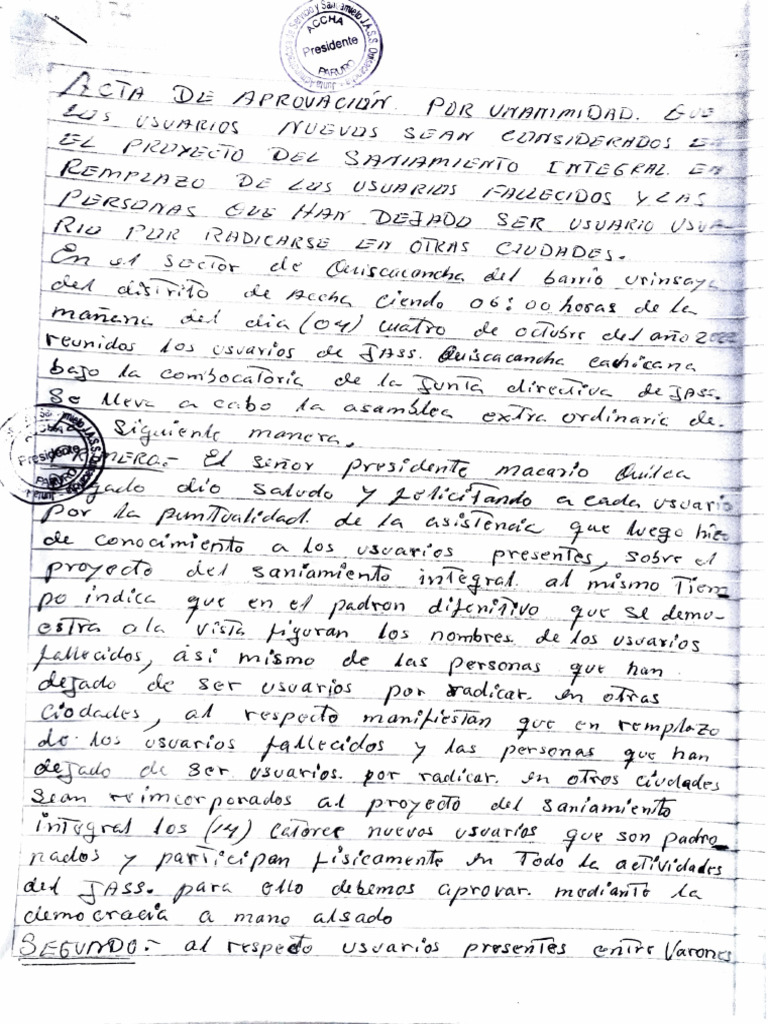 ACCHA
Presidente
PARURO
ACTA DE APROVACIÓN. POR UNANIMIDAD. QUE
LOS USUARIOS NUEVOS SEAN CONSIDERADOS EN
EL PROYECTO DEL SANIAMIENTO INTEGRAL. EN
REMPLAZO DE LOS USUARIOS FALLECIDOS Y LAS
PERSONAS QUE HAN DEJADO SER USUARIO USUA-
RIO POR RADICARSE EN OTRAS CIUDADES.
En el sector de Quiscacancha del barrio urinsaya
del distrito de Accha ciendo 06:00 horas de la
mañana del dia (04) cuatro de octubre del año
reunidos los usuarios de JASS. Quiscacancha cachicana
bajo la combocatoria de la Junta directiva de JASS.
Se lleva a cabo la asamblea extra ordinaria de.
Siguiente manera.
Presidente
PARURO
El señor presidente macario Quilca
dio saludo y felicitando a cada usuario
por la puntualidad. de la asistencia que luego hizo
de conocimiento a los usuarios presentes, sobre el
proyecto del saniamiento integral. al mismo Tiem
po indica que en el padron difenitivo que se demu-
estra a la vista figuran los nombres. de los usuarios
fallecidos, asi mismo de las personas que han
dejado de ser usuarios por radicar. en otras
Ciodades, al respecto manifiestan que en remplazo
de los usuarios fallecidos y las personas que han
dejado de ser usuarios. por radicar. en otros ciudades
Sean reimcorporados al proyecto del saniamiento
integral los (14) Catorce nuevos usuarios que son padro_
nados y participan fisicamente en Todo la actividades
del JASS. para ello debemos aprovar. mediante la
democracia a mano alsado
SEGUNDO.- al respecto usuarios presentes entre Varones